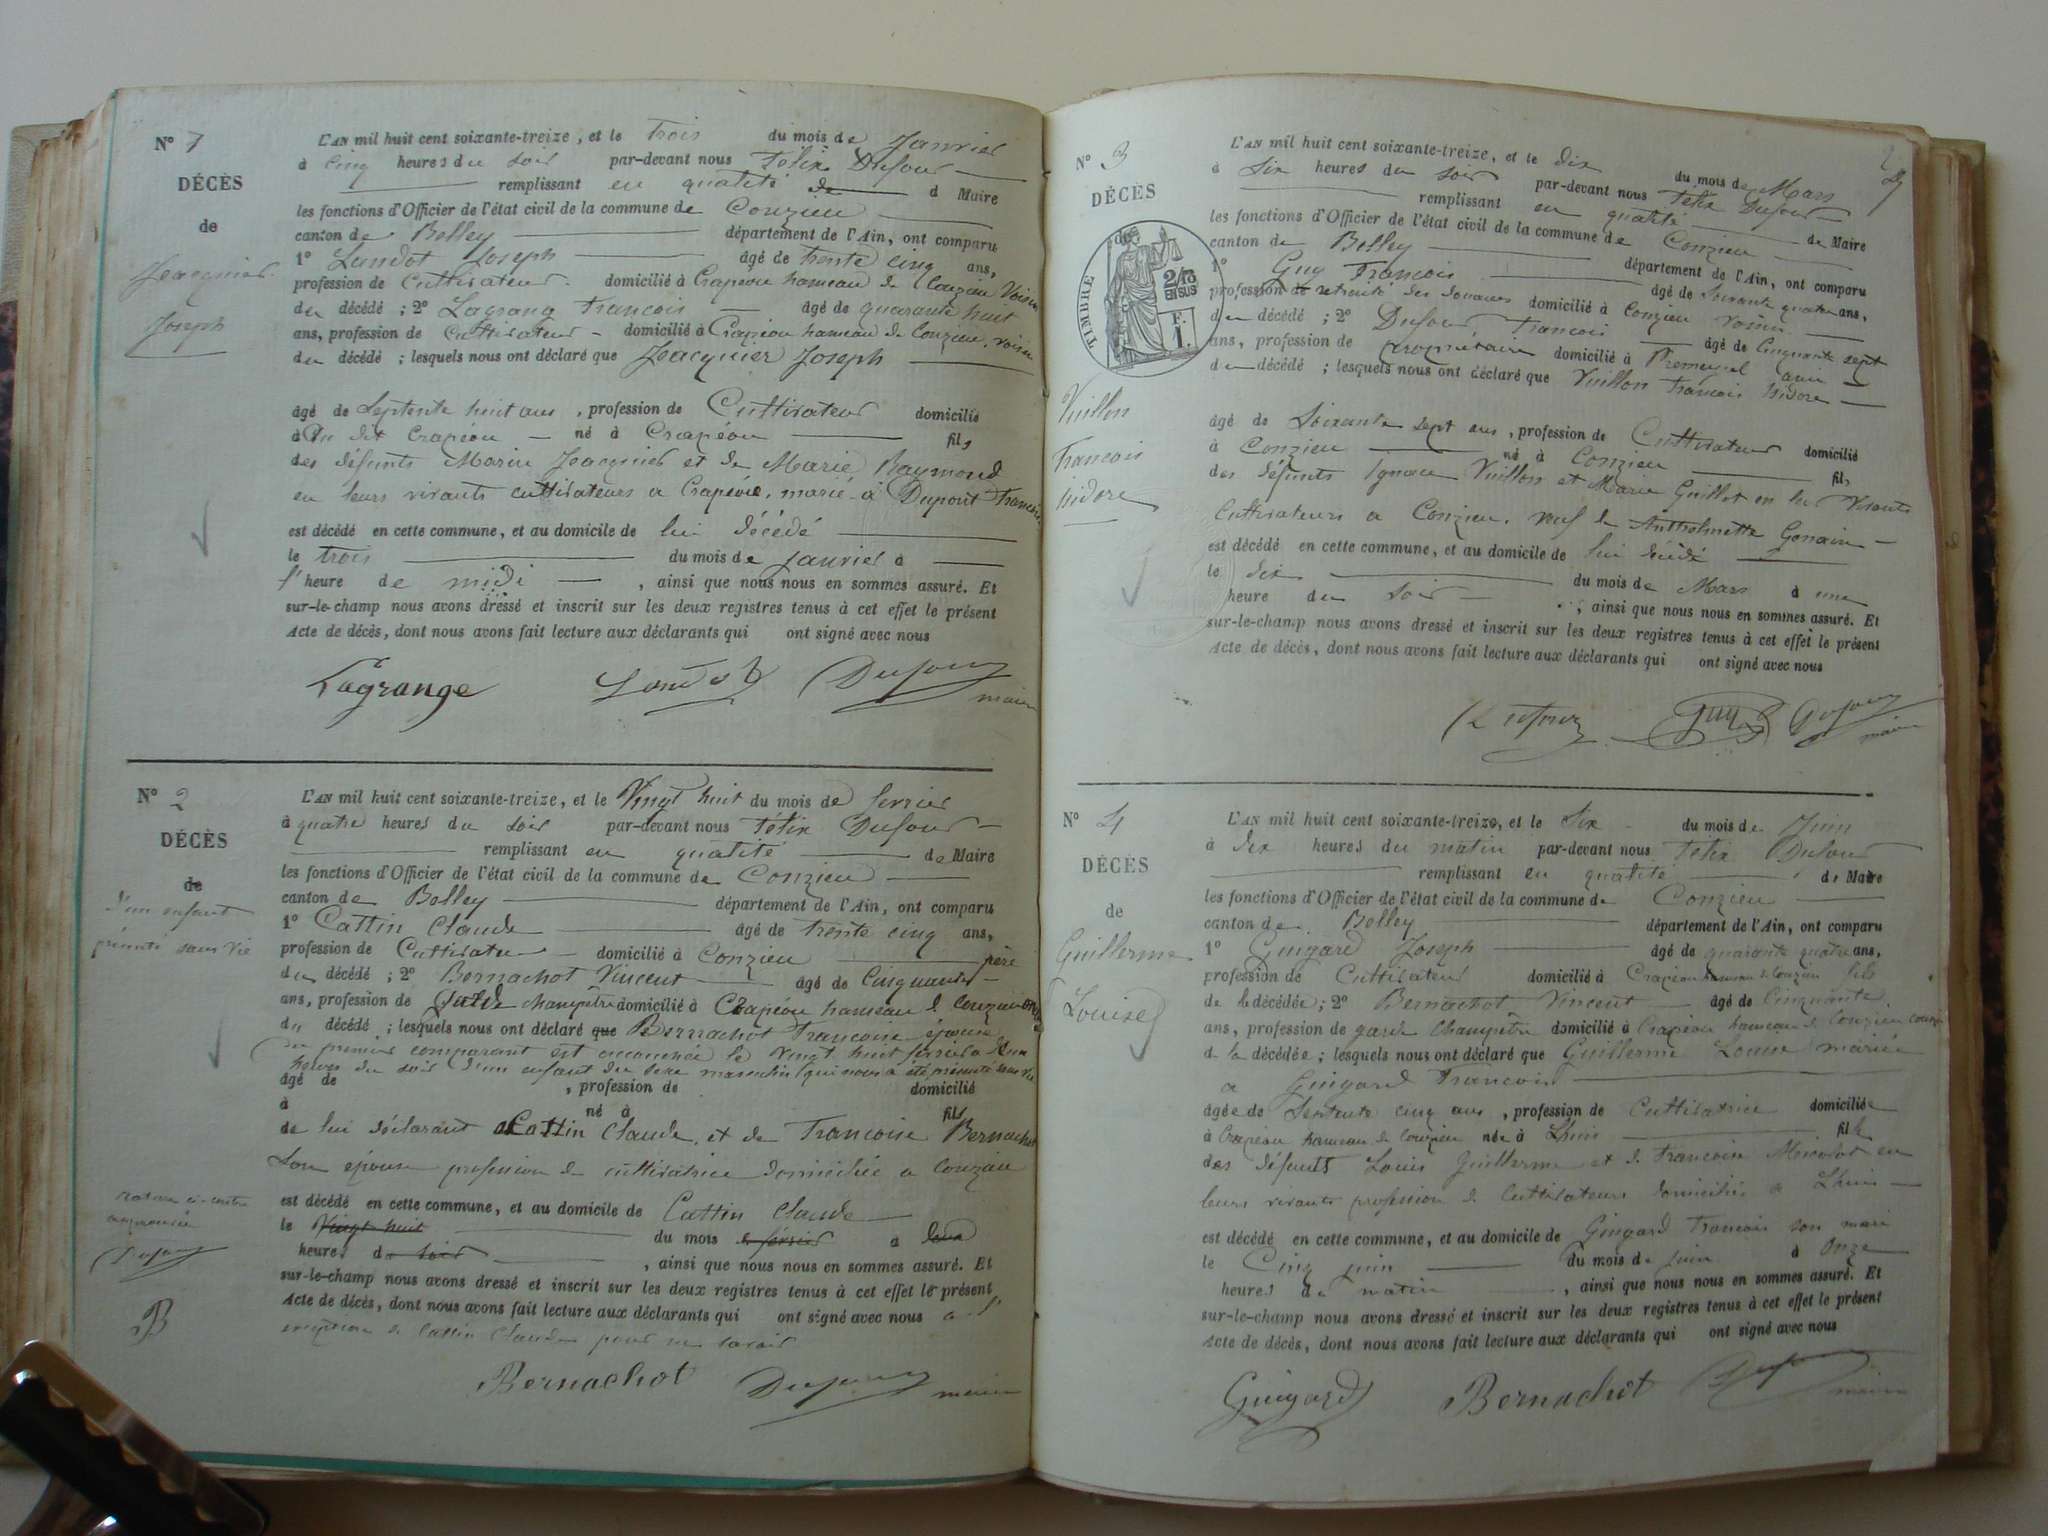 N° 1
DÉCÈS
de
Jeacquier
Joseph
L'AN mil huit cent soixante-treize, et le trois du mois de Janvier
à cinq heures du soir par-devant nous Félix Dufour
remplissant en qualité de d Maire
les fonctions d'Officier de l'état civil de la commune de Conzieu
canton de Belley département de l'Ain, ont comparu
1° Landot Joseph âgé de trente cinq ans,
profession de Cultivateur domicilié à Crapéou hameau de Conzieu Voisin
du décédé ; 2° Lagrang Francois âgé de quarante huit
ans, profession de Cultivateur domicilié à Crapéou hameau de Conzieu, voisin
du décédé ; lesquels nous ont déclaré que Jeacquier Joseph
âgé de Septente huit ans, profession de Cultivateur domicilié
à Du dit Crapéou né à Crapéou fils
des défunts Marin Jeacquier et de Marie Raymond
en leurs vivants cultivateurs a Crapéou, marié à Dupont Francoise
est décédé en cette commune, et au domicile de lui décédé
le trois du mois de janvier à
l'heure de midi, ainsi que nous nous en sommes assuré. Et
sur-le-champ nous avons dressé et inscrit sur les deux registres tenus à cet effet le présent
Acte de décès, dont nous avons fait lecture aux déclarants qui ont signé avec nous
Lagrange Landot Dufour
maire
N° 2
DÉCÈS
de
d'un enfant
présenté sans vie
L'AN mil huit cent soixante-treize, et le Vingt huit du mois de fevrier
à quatre heures du soir par-devant nous Félix Dufour
remplissant en qualité de Maire
les fonctions d'Officier de l'état civil de la commune de Conzieu
canton de Belley département de l'Ain, ont comparu
1° Cattin Claude âgé de trente cinq ans,
profession de Cultivateur domicilié à Conzieu père
du décédé ; 2° Bernachot Vincent âgé de Cinquante
ans, profession de garde champêtre domicilié à Crapéou hameau de Conzieu
du décédé ; lesquels nous ont déclaré que Bernachot Francoise épouse
du premier comparant est accouchée le vingt huit fevrier a deux
heures du soir d'un enfant du sexe masculin qui nous a été présenté sans vie
âgé de , profession de domicilié
à né à fils
de lui déclarant Cattin Claude et de Francoise Bernachot
son épouse profession de cultivatrice domiciliée a Conzieu
rature ci-contre
approuvée
Dufour
B
est décédé en cette commune, et au domicile de Cattin Claude
le Vingt huit du mois de fevrier a deux
heures du soir, ainsi que nous nous en sommes assuré. Et
sur-le-champ nous avons dressé et inscrit sur les deux registres tenus à cet effet le présent
Acte de décès, dont nous avons fait lecture aux déclarants qui ont signé avec nous a l'
exeption de Cattin Claude pour ne savoir
Bernachot Dufour maire
2
N° 3
DÉCÈS
de
TIMBRE
2/10
EN SUS
F.
1.
Vuillon
Francois
Isidore
L'AN mil huit cent soixante-treize, et le dix du mois de Mars
à Six heures du soir par-devant nous Félix Dufour
remplissant en qualité de Maire
les fonctions d'Officier de l'état civil de la commune de Conzieu
canton de Belley département de l'Ain, ont comparu
1° Guy Francois âgé de Soixante quatre ans,
profession de retraité des douanes domicilié à Conzieu voisin
du décédé ; 2° Dufour Francois âgé de Cinquante sept
ans, profession de propriétaire domicilié à Premeyzel ami
du décédé ; lesquels nous ont déclaré que Vuillon Francois Isidore
âgé de Soixante sept ans, profession de Cultivateur domicilié
à Conzieu né à Conzieu fils
des défunts Ignace Vuillon et Marie Guillot en leur vivants
Cultivateurs a Conzieu, veuf de Antholmette Gonain
est décédé en cette commune, et au domicile de lui décédé
le dix du mois de Mars à une
heure du soir, ainsi que nous nous en sommes assuré. Et
sur-le-champ nous avons dressé et inscrit sur les deux registres tenus à cet effet le présent
Acte de décès, dont nous avons fait lecture aux déclarants qui ont signé avec nous
Dufour Guy Dufour
maire
N° 4
DÉCÈS
de
Guillerme
Louise
L'AN mil huit cent soixante-treize, et le Six du mois de Juin
à dix heures du matin par-devant nous Félix Dufour
remplissant en qualité de Maire
les fonctions d'Officier de l'état civil de la commune de Conzieu
canton de Belley département de l'Ain, ont comparu
1° Guigard Joseph âgé de quarante quatre ans,
profession de Cultivateur domicilié à Crapéou hameau de Conzieu fils
de la décédée ; 2° Bernachot Vincent âgé de Cinquante
ans, profession de garde champêtre domicilié à Crapéou hameau de Conzieu cousin
de la décédée ; lesquels nous ont déclaré que Guillerme Louise mariée
a Guigard Francois
âgée de Septente cinq ans, profession de Cultivatrice domiciliée
à Crapéou hameau de Conzieu née à Lhuis fille
des défunts Louis Guillerme et de Francoise Micolot en
leurs vivants profession de Cultivateurs domiciliés a Lhuis
est décédé en cette commune, et au domicile de Guigard Francois son mari
le Cinq juin du mois de juin à Onze
heures du matin, ainsi que nous nous en sommes assuré. Et
sur-le-champ nous avons dressé et inscrit sur les deux registres tenus à cet effet le présent
Acte de décès, dont nous avons fait lecture aux déclarants qui ont signé avec nous
Guigard Bernachot Dufour
maire